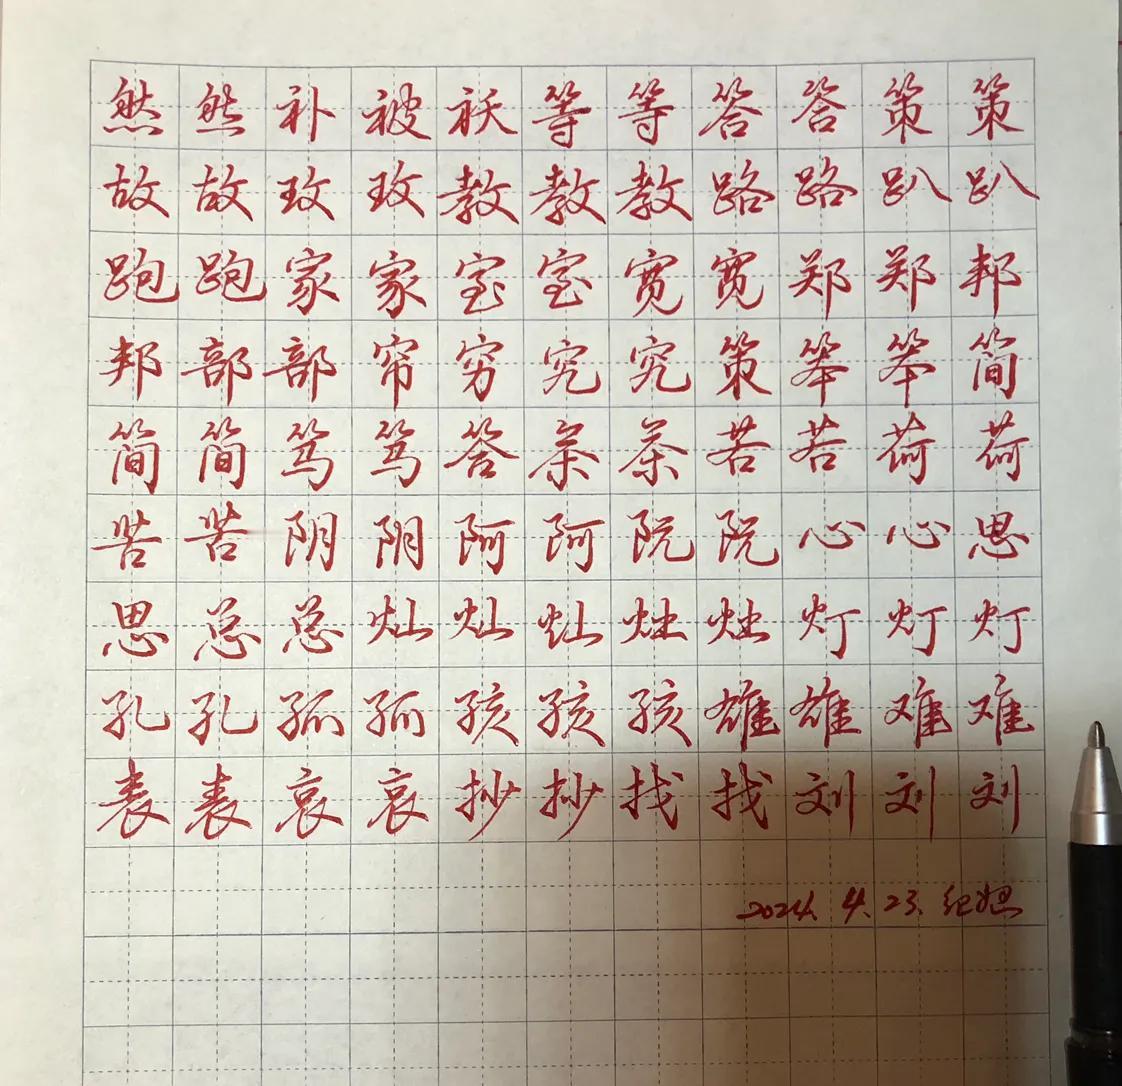 然然补被袄等等答答策策
故故玫玫教教教路路趴趴
跑跑家家室室宽宽郑郑邦
邦部部帘穷究究策笨笨简
简简笃笃答茶茶若若荷荷
苦苦阴阴阿阿阮阮心心思
思总总灿灿灿灶灶灯灯灯
孔孔孤孤孩孩孩雄雄难难
表表哀哀抄抄找找刘刘刘
2024. 4. 23.